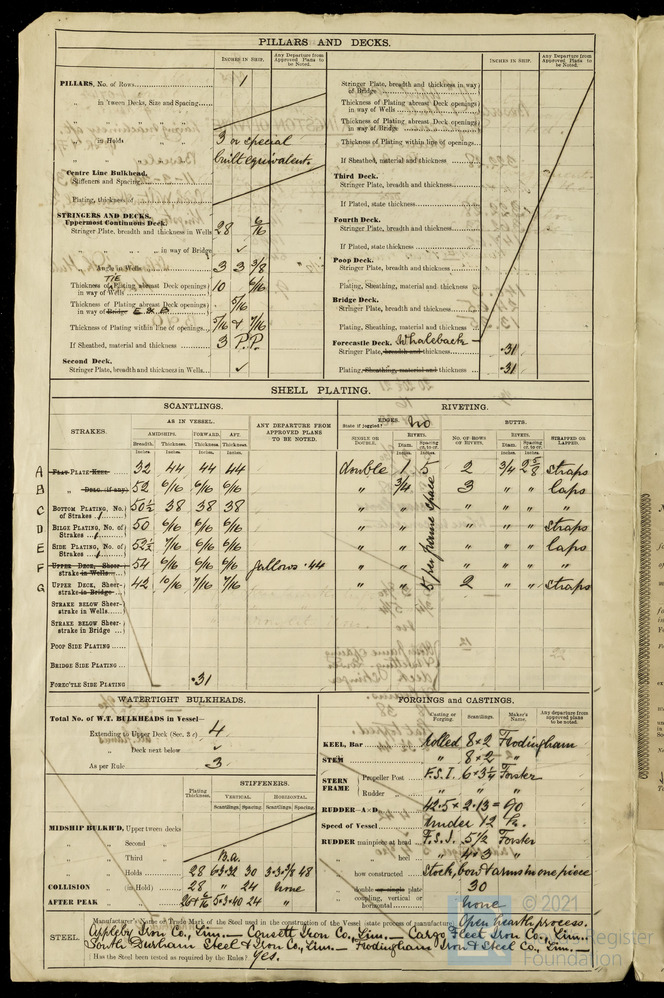 PILLARS AND DECKS.
INCHES IN SHIP.
Any Departure from Approved Plans to be Noted.
PILLARS, No. of Rows 1
„ in 'tween Decks, Size and Spacing
„ „ „
„ in Holds „ „ 3 or special
„ „ „ built equivalent.
Centre Line Bulkhead.
Stiffeners and Spacing
Plating, thickness of
STRINGERS AND DECKS.
Uppermost Continuous Deck.
Stringer Plate, breadth and thickness in Wells 28 6/16
„ „ „ „ in way of Bridge ✓
„ Angle in Wells 3 3 3/8
Thickness of TIE Plating abreast Deck openings in way of Wells 10 6/16
Thickness of Plating abreast Deck openings in way of Bridge E & B 5/16
Thickness of Plating within line of openings 5/16 & 7/16
If Sheathed, material and thickness 3 P.P.
Second Deck.
Stringer Plate, breadth and thickness in Wells ✓
INCHES IN SHIP.
Any Departure from Approved Plans to be Noted.
Stringer Plate, breadth and thickness in way of Bridge
Thickness of Plating abreast Deck openings in way of Wells
Thickness of Plating abreast Deck openings in way of Bridge
Thickness of Plating within line of openings
If Sheathed, material and thickness
Third Deck.
Stringer Plate, breadth and thickness
If Plated, state thickness
Fourth Deck.
Stringer Plate, breadth and thickness
If Plated, state thickness
Poop Deck.
Stringer Plate, breadth and thickness
Plating, Sheathing, material and thickness
Bridge Deck.
Stringer Plate, breadth and thickness
Plating, Sheathing, material and thickness
Forecastle Deck. Whaleback
Stringer Plate, breadth and thickness ·31
Plating, Sheathing, material and thickness ·31
SHELL PLATING.
SCANTLINGS.
RIVETING.
STRAKES.
AS IN VESSEL.
AMIDSHIPS. FORWARD. AFT.
Breadth. Thickness. Thickness. Thickness.
Inches. Inches. Inches. Inches.
ANY DEPARTURE FROM APPROVED PLANS TO BE NOTED.
EDGES.
State if joggled? No
BUTTS.
SINGLE OR DOUBLE.
RIVETS.
Diam. Spacing cr. to cr.
Inches. Inches.
NO. OF ROWS OF RIVETS.
RIVETS.
Diam. Spacing cr. to cr.
Inches. Inches.
STRAPPED OR LAPPED.
A FLAT PLATE KEEL 32 44 44 44 double 1 5 2 3/4 2 5/8 straps
B „ DBLG. (if any) 52 6/16 6/16 6/16 „ 3/4 3 „ „ laps
C BOTTOM PLATING, No. of Strakes 1 50½ 38 38 38 „ „ „ „ „ „
D BILGE PLATING, No. of Strakes 1 50 6/16 6/16 6/16 „ „ „ „ „ straps
E SIDE PLATING, No. of Strakes 1 52½ 7/16 6/16 6/16 „ „ „ „ „ laps
F UPPER DECK, Sheerstrake in Wells 54 6/16 6/16 6/16 gallows ·44 „ „ „ „ „
G UPPER DECK, Sheerstrake in Bridge 42 10/16 7/16 7/16 „ „ 2 „ „ straps
8 per frame space
STRAKE BELOW Sheerstrake in Wells
STRAKE BELOW Sheerstrake in Bridge
POOP SIDE PLATING
BRIDGE SIDE PLATING
FOREC'TLE SIDE PLATING ·31
WATERTIGHT BULKHEADS.
Total No. of W.T. BULKHEADS in Vessel—
Extending to Upper Deck (Sec. 3 c) 4
„ Deck next below ✓
As per Rule 3
Plating Thickness.
STIFFENERS.
VERTICAL. HORIZONTAL.
Scantlings. Spacing. Scantlings. Spacing.
MIDSHIP BULKH'D, Upper tween decks
„ „ Second „
„ „ Third „ B.a.
„ „ Holds 28 6·3·32 30 3·3·3/8 48
COLLISION „ (in Hold) 28 „ 24 None
AFTER PEAK „ „ 5·3·40 24 „
FORGINGS and CASTINGS.
Casting or Forging. Scantlings. Maker's Name. Any departure from approved plans to be noted.
KEEL, Bar Rolled 8 × 2 Frodingham
STEM „ 8 × 2 „
STERN FRAME Propeller Post F.S.I. 6 × 3½ Forster
Rudder „ „ „ „
RUDDER—A × D 42·5 × 2·13 = 90
Speed of Vessel under 12 Kn.
RUDDER mainpiece at head F.S.I. 5½ Forster
„ „ heel „ 4 × 3 „
„ how constructed Stock, bow & arms in one piece
„ double or single plate 30
„ coupling, vertical or horizontal None
STEEL.
Manufacturer's Name or Trade Mark of the Steel used in the construction of the Vessel (state process of manufacture) Open hearth process.
Appleby Iron Co., Lim. — Consett Iron Co., Lim. — Cargo Fleet Iron Co., Lim.
South Durham Steel & Iron Co., Lim. — Frodingham Iron & Steel Co., Lim.
Has the Steel been tested as required by the Rules? Yes.
© 2021
Register
Foundation